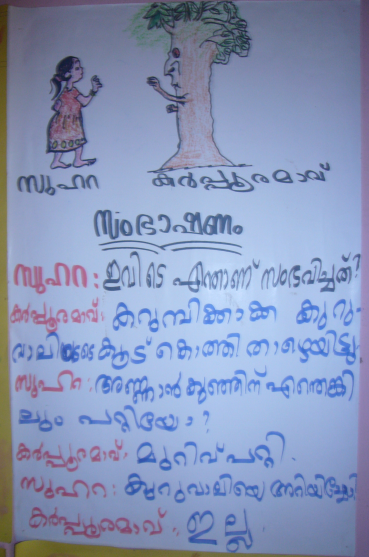 സുഹറ കർപ്പൂരമാവ്
സംഭാഷണം
സുഹറ: ഇവിടെ എന്താണ് സംഭവിച്ചത്?
കർപ്പൂരമാവ്: കറുമ്പിക്കാക്ക കുറു-
വാലിയുടെ കൂട് കൊത്തി താഴെയിട്ടു.
സുഹറ: അണ്ണാൻകുഞ്ഞിന് എന്തെങ്കി
ലും പറ്റിയോ?
കർപ്പൂരമാവ്: മുറിവ് പറ്റി.
സുഹറ: കുറുവാലിയെ അറിയിച്ചോ.
കർപ്പൂരമാവ്: ഇല്ല.